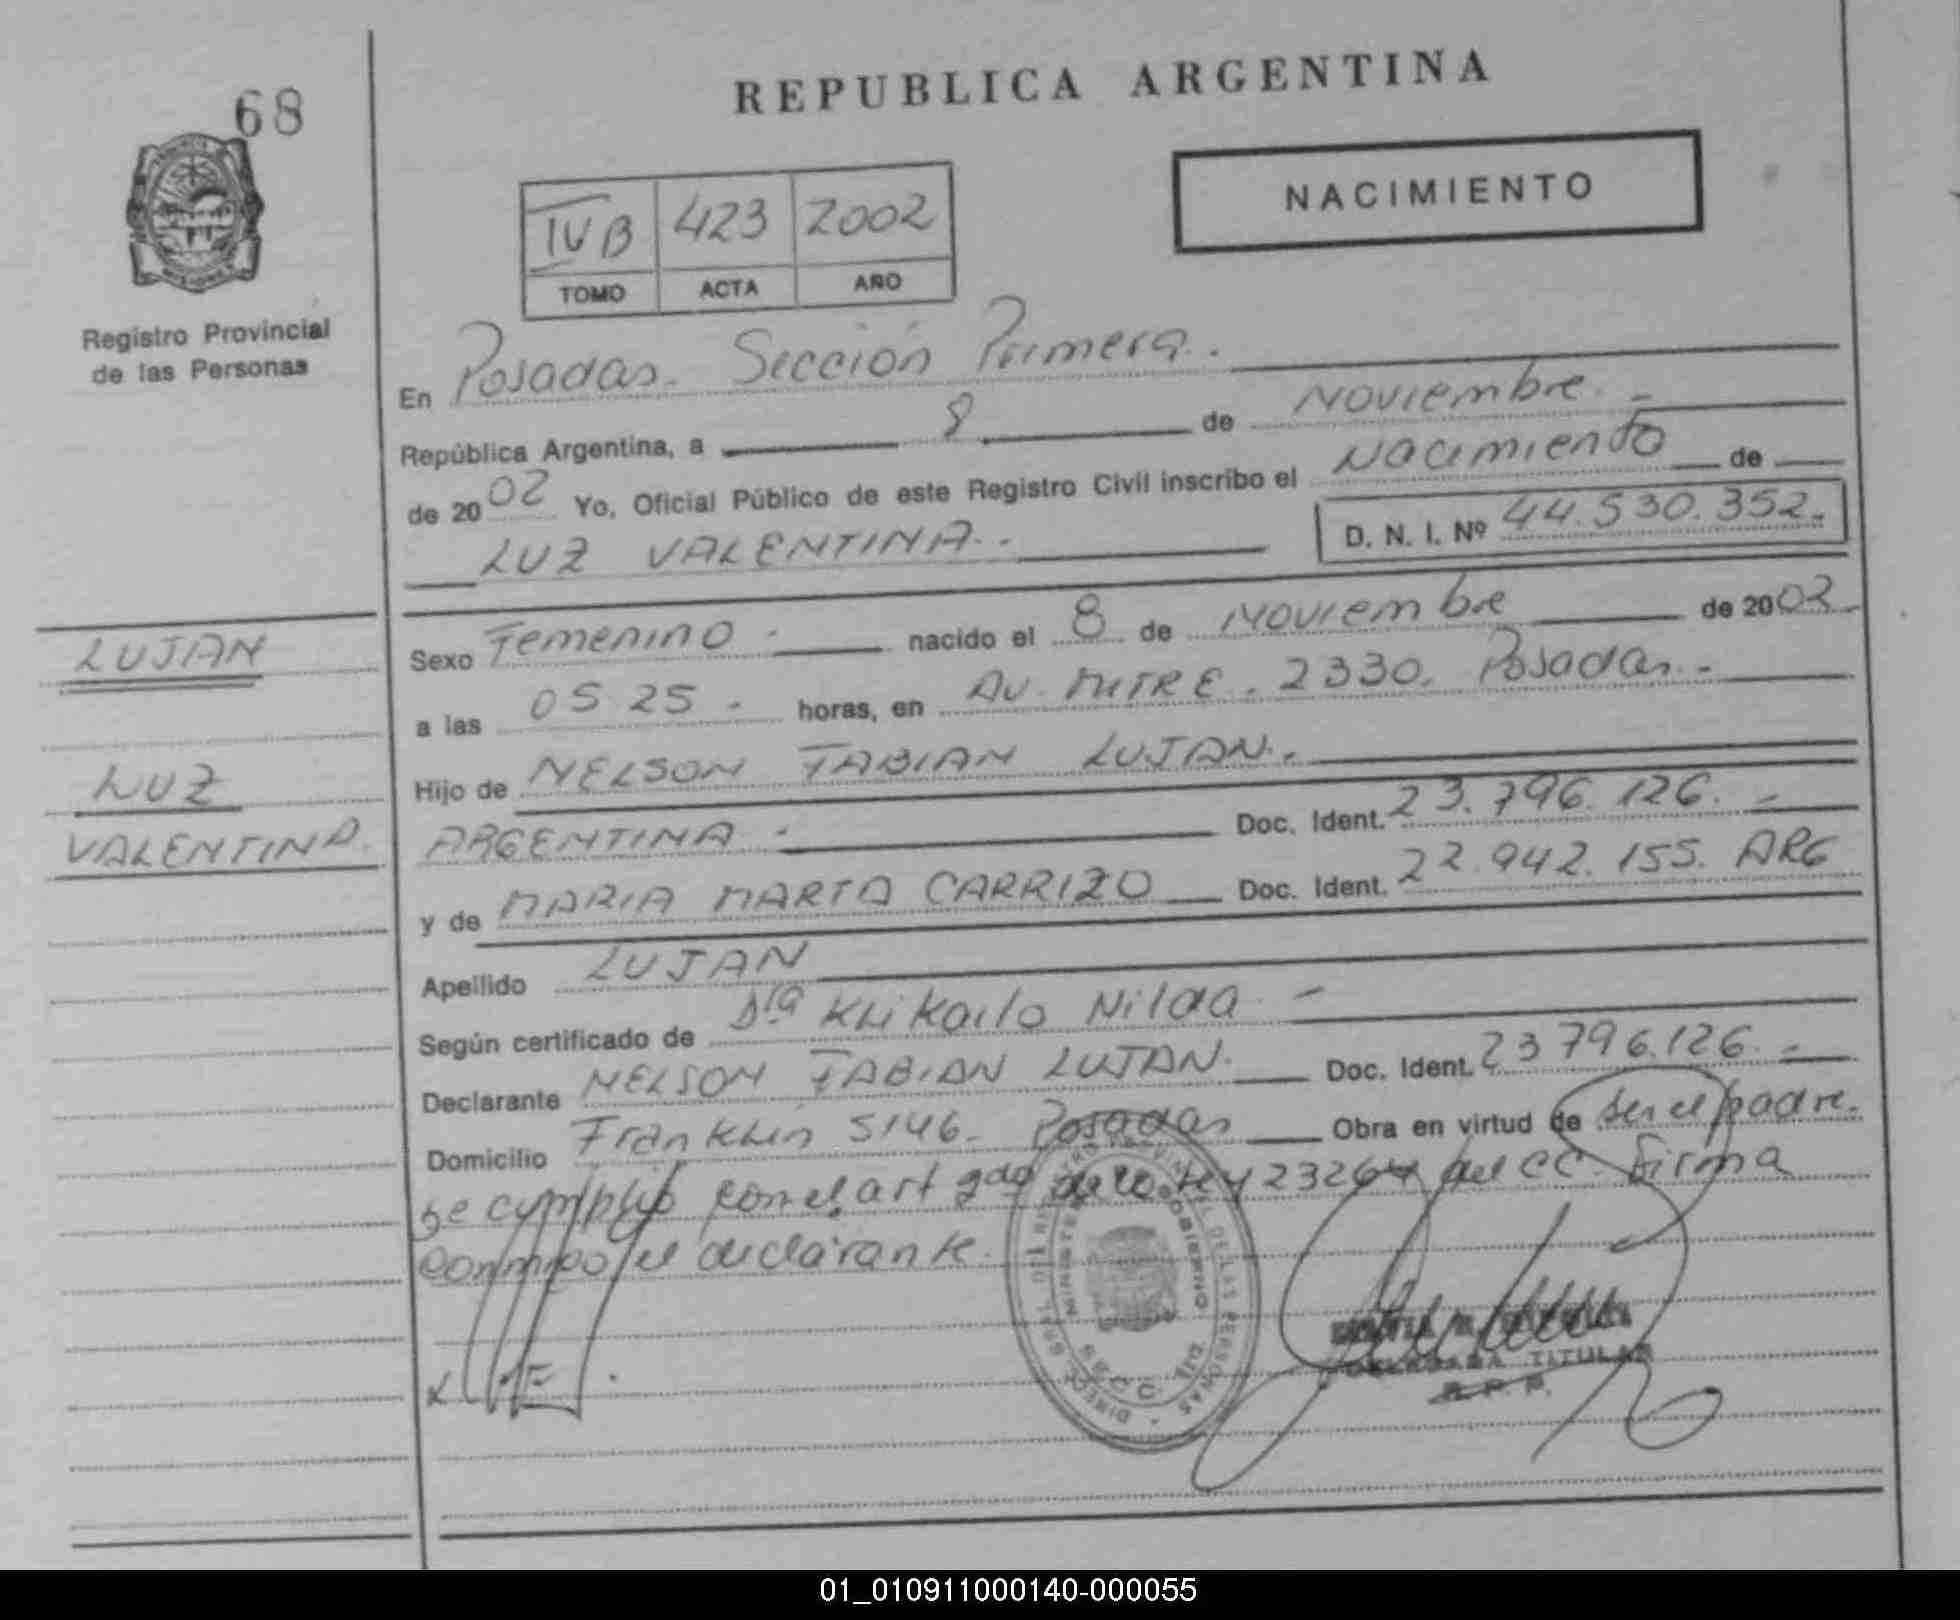 68
REPUBLICA ARGENTINA
NACIMIENTO
IVB 423 2002
TOMO ACTA AÑO
Registro Provincial
de las Personas
En Posadas. Sección Primera.
República Argentina, a 8 de Noviembre.
de 2002 Yo, Oficial Público de este Registro Civil inscribo el Nacimiento de
LUZ VALENTINA.
D. N. I. Nº 44.530.352.
LUJAN
Sexo Femenino. nacido el 8 de Noviembre de 2002
a las 05 25. horas, en AV. MITRE. 2330. Posadas.
LUZ
VALENTINA.
Hijo de NELSON FABIAN LUJAN.
ARGENTINA. Doc. Ident. 23.796.126.
y de MARIA MARTA CARRIZO Doc. Ident. 22.942.155. ARG
Apellido LUJAN
Según certificado de Dra Klikailo Nilda
Declarante NELSON FABIAN LUJAN. Doc. Ident. 23796.126.
Domicilio Franklin 5146. Posadas Obra en virtud de ser el padre.
se cumplió con el art 2do de la Ley 23264 del CC. Firma
conmigo el declarante.
DELEGADA TITULAR
R. P. P.
01_010911000140-000055